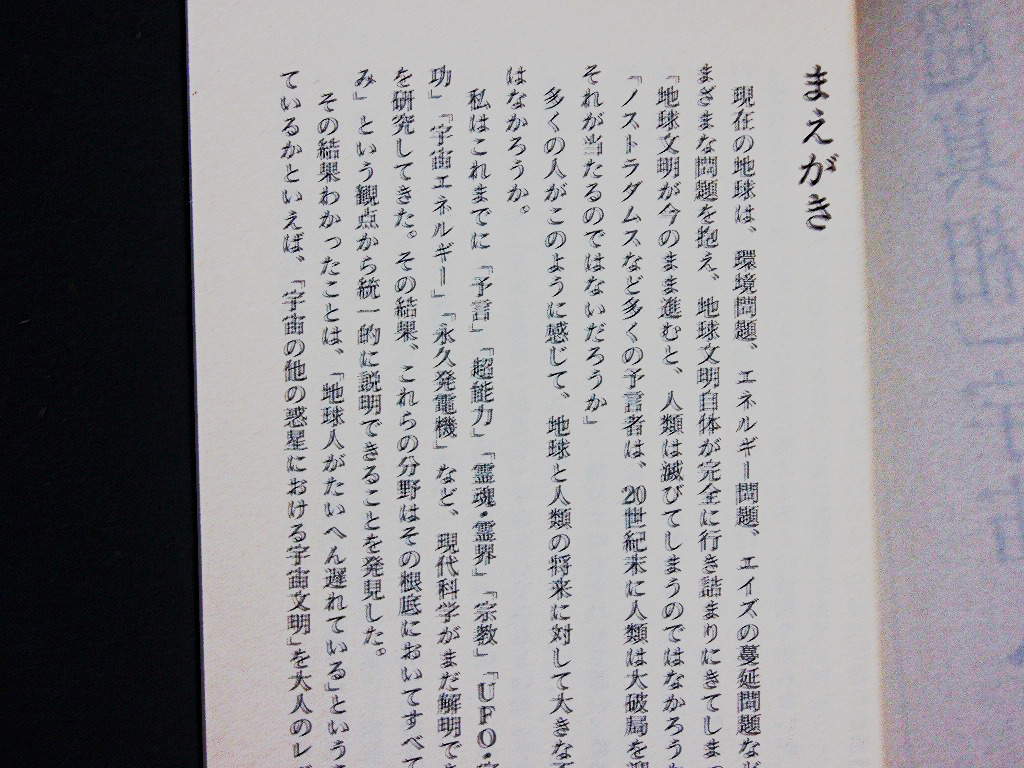 まえがき
現在の地球は、環境問題、エネルギー問題、エイズの蔓延問題など
まざまな問題を抱え、地球文明自体が完全に行き詰まりにきてしまっ
「地球文明が今のまま進むと、人類は滅びてしまうのではなかろう
「ノストラダムスなど多くの予言者は、20世紀末に人類は大破局を迎
それが当たるのではないだろうか」
多くの人がこのように感じて、地球と人類の将来に対して大きな
はなかろうか。
私はこれまでに「予言」「超能力」「霊魂・霊界」「宗教」「UFO・
功」「宇宙エネルギー」「永久発電機」など、現代科学がまだ解明でき
を研究してきた。その結果、これらの分野はその根底においてすべて
み」という観点から統一的に説明できることを発見した。
その結果わかったことは、「地球人がたいへん遅れている」という
ているかといえば、「宇宙の他の惑星における宇宙文明」を大人のレ